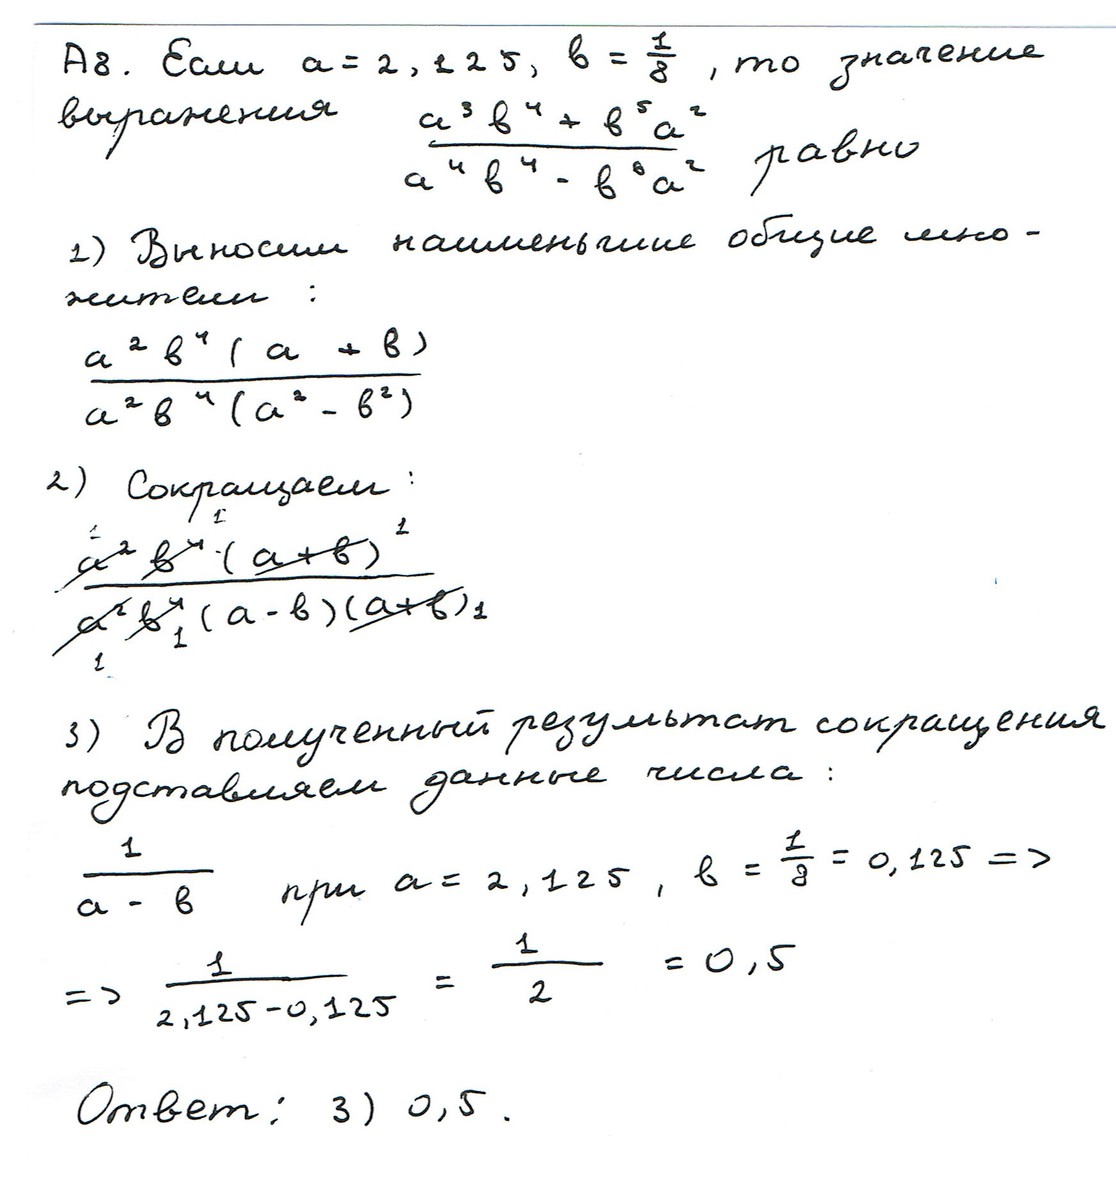 А8. Если a = 2,125, в = 1/8, то значение
выражения (a³в⁴ + в⁵a²)/(a⁴в⁴ - в⁶a²) равно
1) Выносим наименьшие общие мно-
жители :
a²в⁴(a + в)
a²в⁴(a² - в²)
2) Сокращаем :
1 1 1
a²в⁴·(a+в)
a²в⁴(a-в)(a+в)
1 1 1
3) В полученный результат сокращения
подставляем данные числа :
1/(a - в) при a = 2,125, в = 1/8 = 0,125 =>
=> 1/(2,125-0,125) = 1/2 = 0,5
Ответ: 3) 0,5.